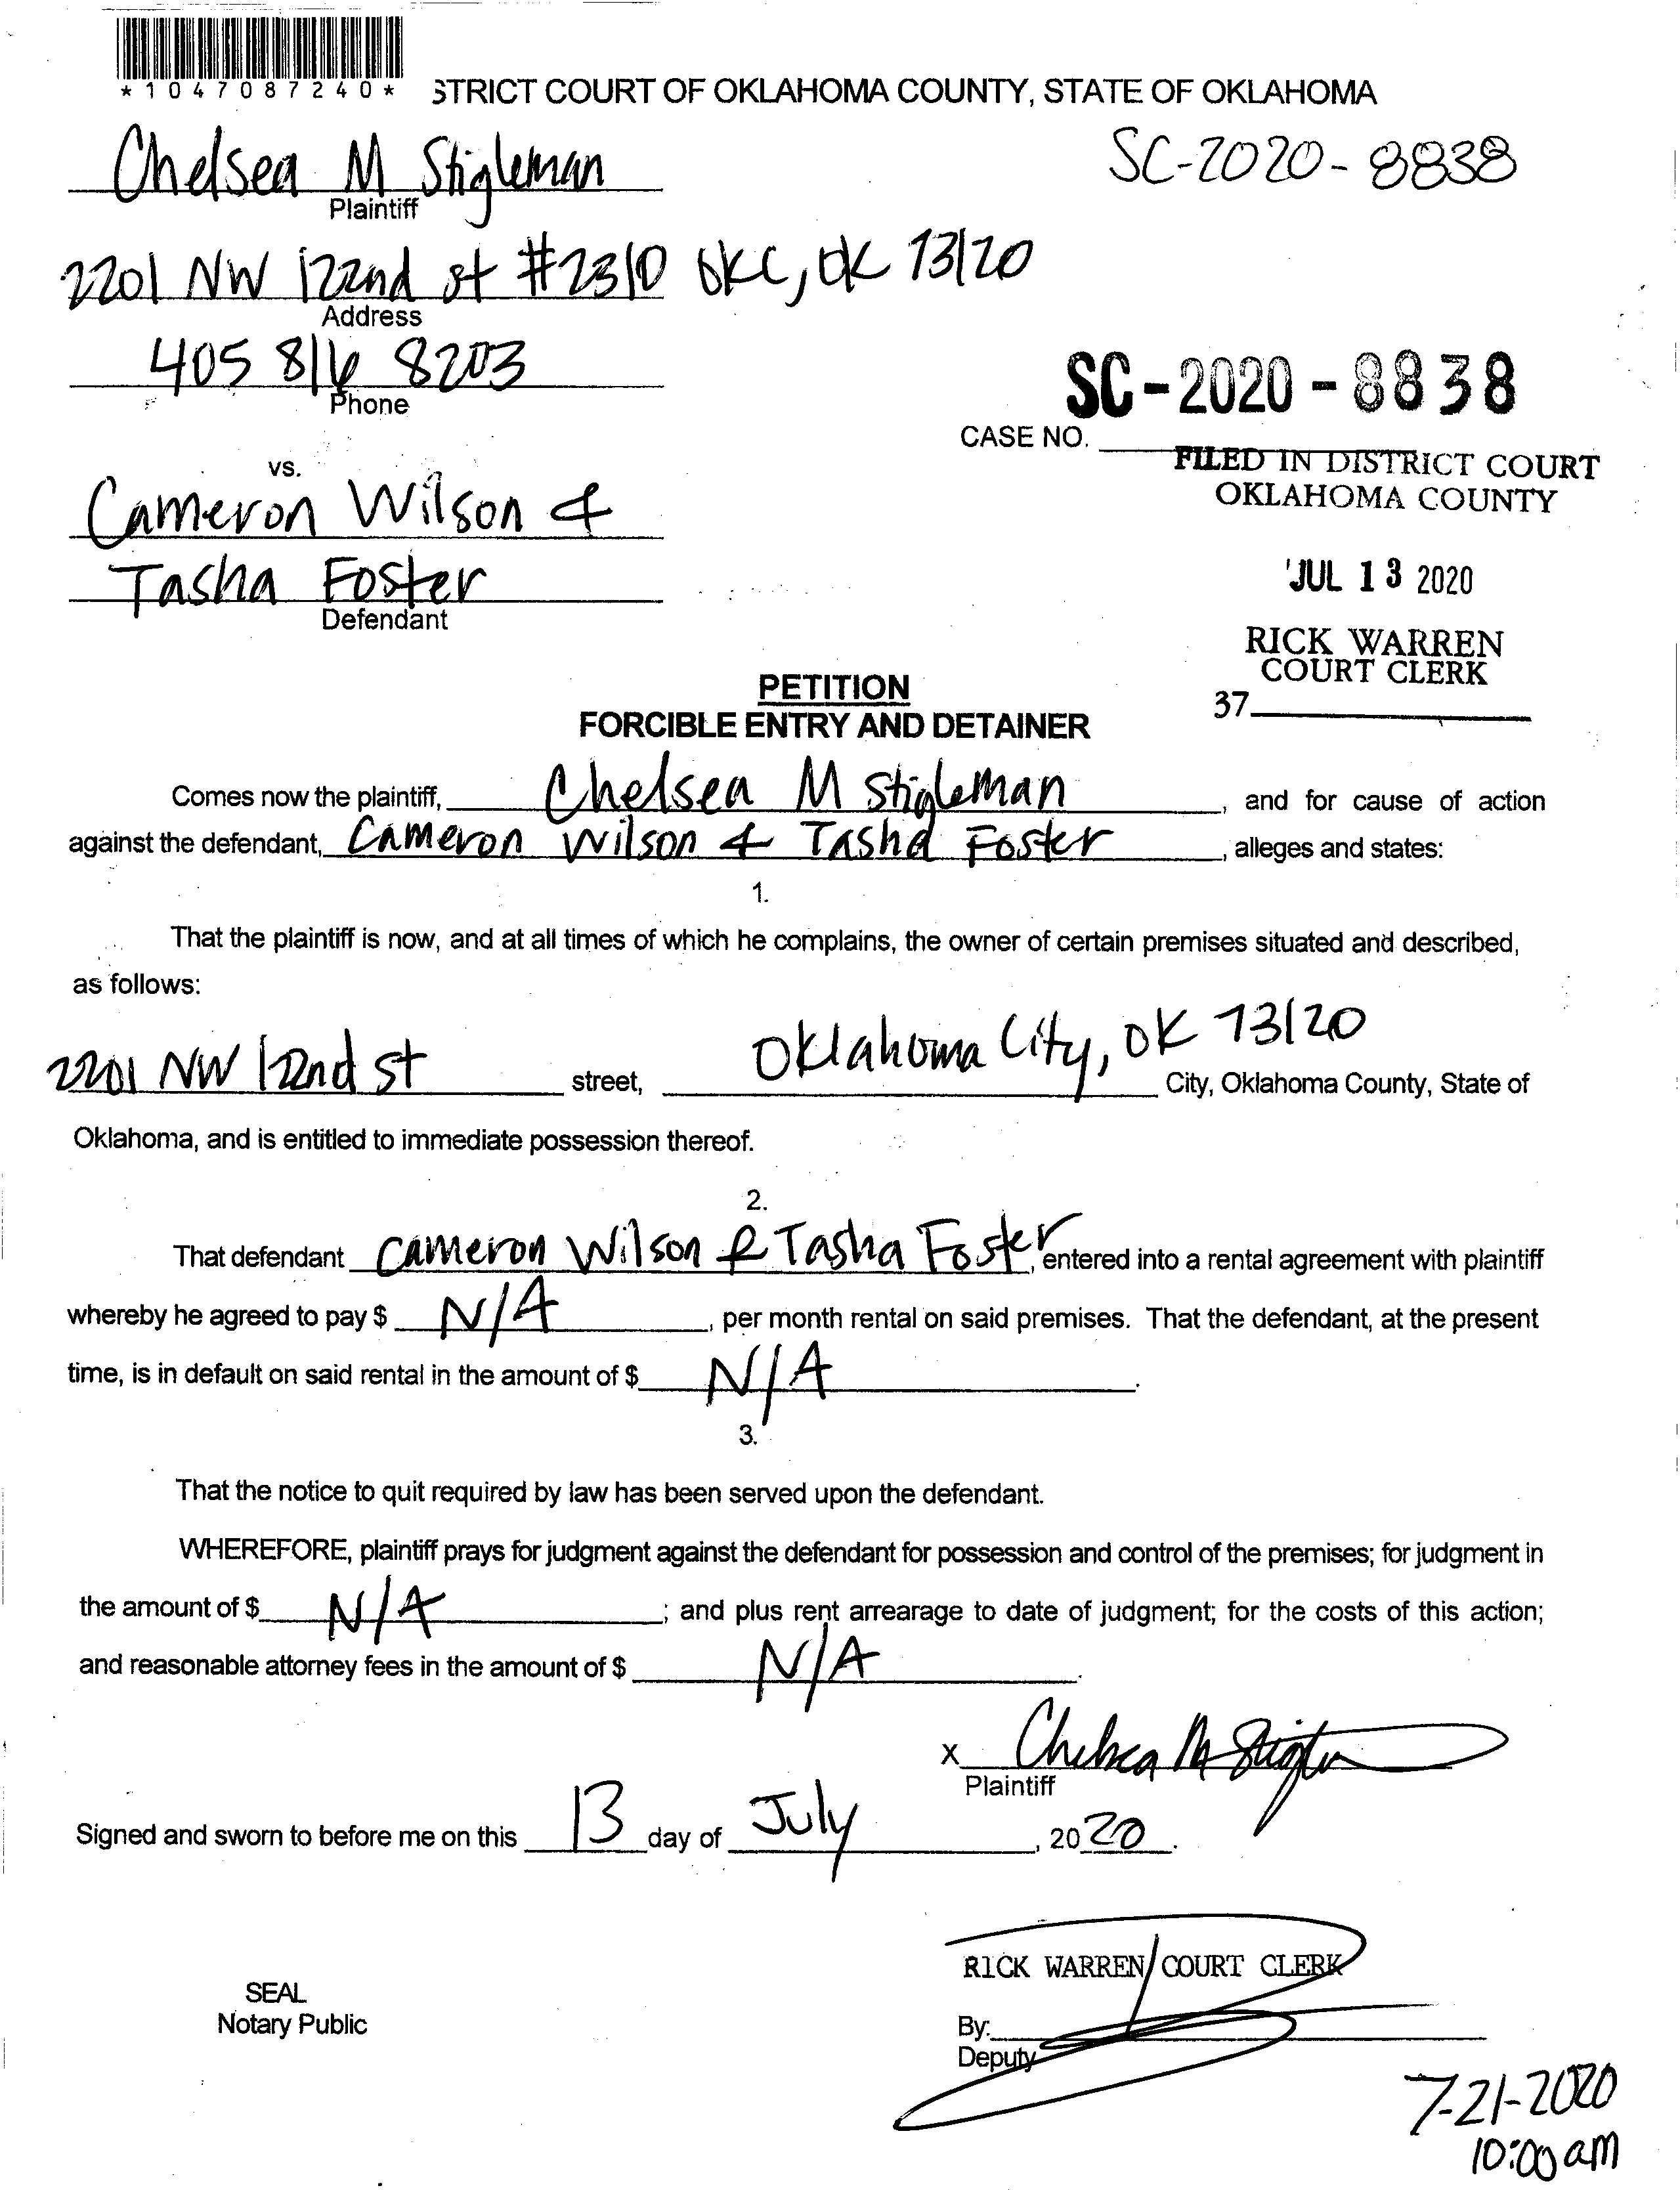 *1047087240*
STRICT COURT OF OKLAHOMA COUNTY, STATE OF OKLAHOMA
Chelsea M Stigleman
SC-2020-8838
Plaintiff
2201 NW 122nd st #2310 OKC, OK 73120
Address
405 816 8203
Phone
SC-2020-8838
CASE NO.
FILED IN DISTRICT COURT
OKLAHOMA COUNTY
vs.
Cameron Wilson &
Tasha Foster
Defendant
JUL 13 2020
RICK WARREN
COURT CLERK
37
PETITION
FORCIBLE ENTRY AND DETAINER
Comes now the plaintiff, Chelsea M Stigleman, and for cause of action
against the defendant, Cameron Wilson & Tasha Foster, alleges and states:
1.
That the plaintiff is now, and at all times of which he complains, the owner of certain premises situated and described,
as follows:
2201 NW 122nd st street, Oklahoma City, OK 73120 City, Oklahoma County, State of
Oklahoma, and is entitled to immediate possession thereof.
2.
That defendant Cameron Wilson & Tasha Foster, entered into a rental agreement with plaintiff
whereby he agreed to pay $ N/A, per month rental on said premises. That the defendant, at the present
time, is in default on said rental in the amount of $ N/A.
3.
That the notice to quit required by law has been served upon the defendant.
WHEREFORE, plaintiff prays for judgment against the defendant for possession and control of the premises; for judgment in
the amount of $ N/A; and plus rent arrearage to date of judgment; for the costs of this action;
and reasonable attorney fees in the amount of $ N/A.
X Chelsea M Stigleman
Plaintiff
Signed and sworn to before me on this 13 day of July, 2020.
RICK WARREN COURT CLERK
SEAL
Notary Public
By:
Deputy
7-21-2020
10:00 am